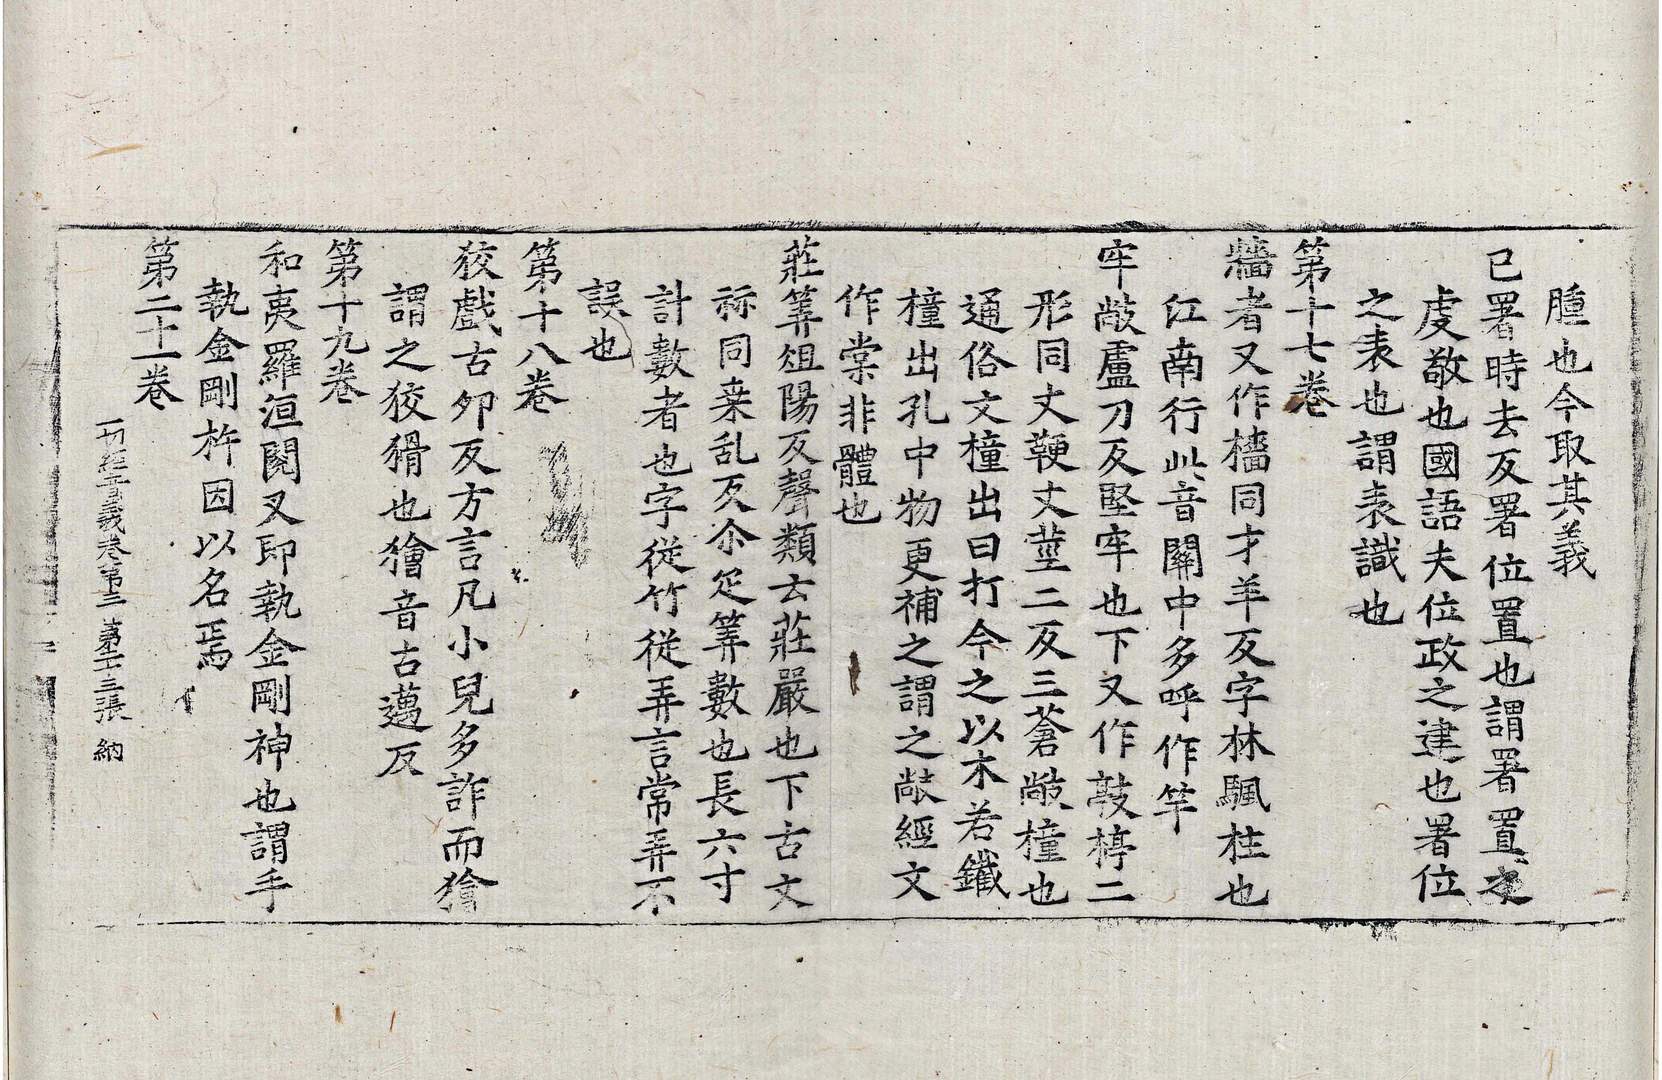 腫也今取其義
已署時去反署位置也謂署置之
虔敬也國語夫位政之建也署位
之表也謂表識也
第十七卷
牆者又作樯同才羊反字林颿柱也
江南行此音關中多呼作竿
牢敞盧刀反堅牢也下又作敼揨二
形同丈鞕丈莖二反三蒼敞橦也
通俗文橦出曰打今之以木若鐵
橦出孔中物更補之謂之敞經文
作棠非體也
莊筭俎陽反聲類云莊嚴也下古文
祘同桒乱反尒疋筭數也長六寸
計數者也字從竹從弄言常弄不
誤也
第十八卷
狡戲古夘反方言凡小兒多詐而獪
謂之狡猾也獪音古邁反
第十九卷
和夷羅洹閱叉即執金剛神也謂手
執金剛杵因以名焉
第二十一卷
一切經音義卷第三 第十三張 納